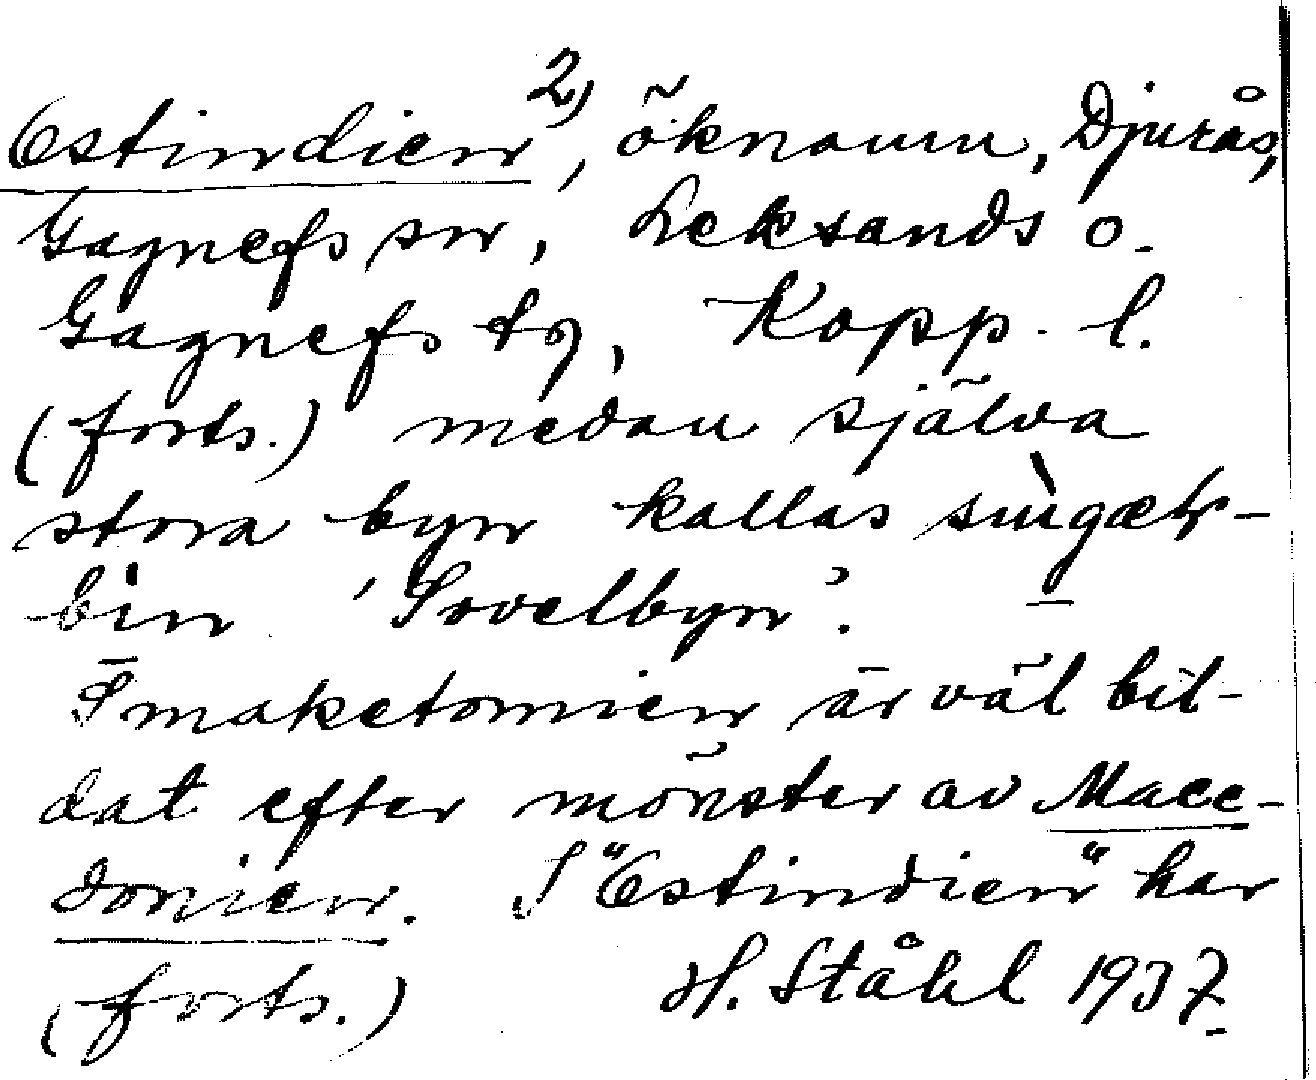 Estindien 2), öknamn, Djurås,
Gagnefs sn, Leksands o.
Gagnefs tg, Kopp. l.
(forts.) medan själva
stora byn kallas
bìn 'Sovelbyn'. –
Smaketonien är väl bil-
dat efter mönster av Mace-
donien. I "Estindien" har
(forts.) H. Ståhl 1937.